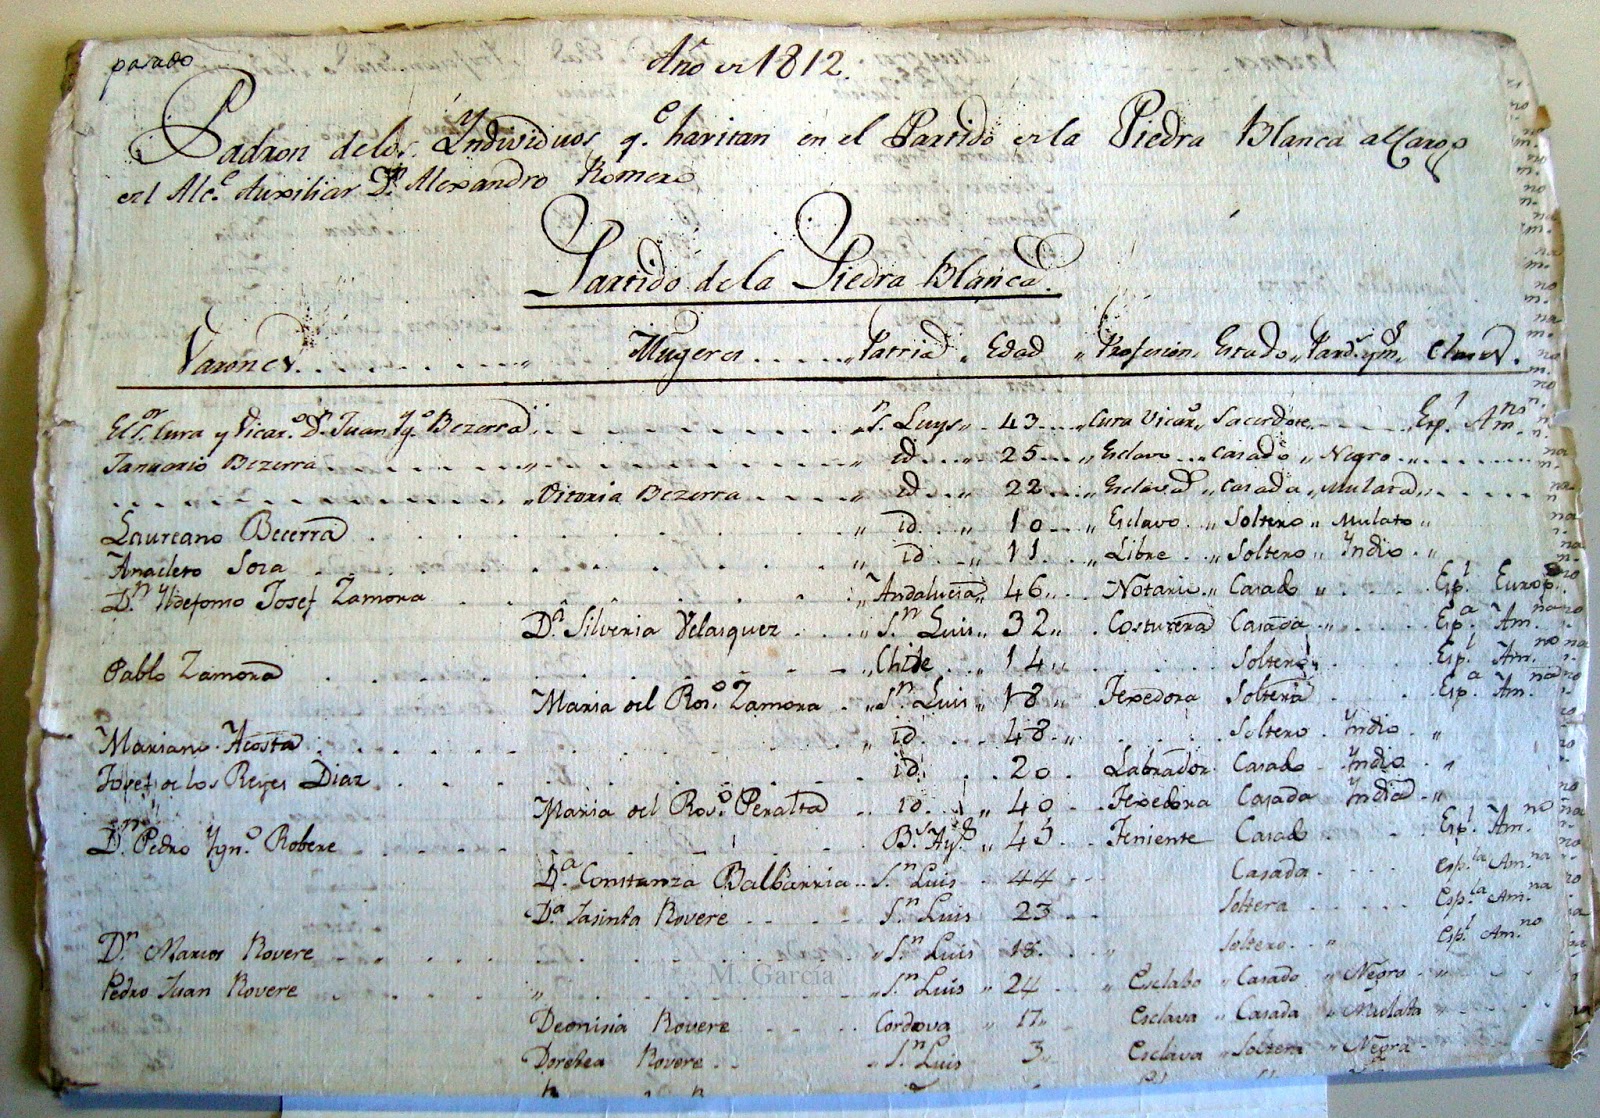 pasado
Año de 1812.
Padron delos Yndividuos q.e havitan en el Partido de la Piedra Blanca al Cargo
del Alc.e Auxiliar D.n Alexandro Romero
Partido de la Piedra Blanca.
Varones Mugeres Patria Edad Profesion Estado Pard.s y m.s Clases.
El S.or Cura y Vicar.o D.n Juan Yg.o Bezerra S.n Luys 43 Cura Vicar.o Sacerdote Esp.l Am.no
Januario Bezerra id. 25 Esclavo Casado Negro
Vitoria Bezerra id. 22 Esclava Casada Mulata
Laureano Becerra id. 10 Esclavo Soltero Mulato
Anacleto Sosa id 11 Libre Soltero Yndio
D.n Yldefonso Josef Zamora Andalucia 46 Notario Casado Esp.l Europ.o
D.a Silveria Velasquez S.n Luis 32 Costurera Casada Esp.a Am.na
Pablo Zamora Chile 14 Soltero Esp.l Am.no
Maria del Ros.o Zamora S.n Luis 18 Texedora Soltera Esp.a Am.na
Mariano Acosta id. 48 Soltero Yndio
Josef de los Reyes Diaz id. 20 Labrador Casado Yndio
Maria del Ros.o Peralta id. 40 Texedora Casada Yndia
D.n Pedro Ygn.o Robere B.s Ay.s 45 Teniente Casado Esp.l Am.no
D.a Constanza Balbarria S.n Luis 44 Casada Esp.la Am.na
D.a Jasinta Rovere S.n Luis 23 Soltera Esp.la Am.na
D.n Marcos Rovere S.n Luis 18 Soltero Esp.l Am.no
M. García
Pedro Juan Rovere S.n Luis 24 Esclabo Casado Negro
Deonisia Rovere Cordova 17 Esclava Casada Mulata
Dorotea Rovere S.n Luis 3 Esclava Soltera Negra